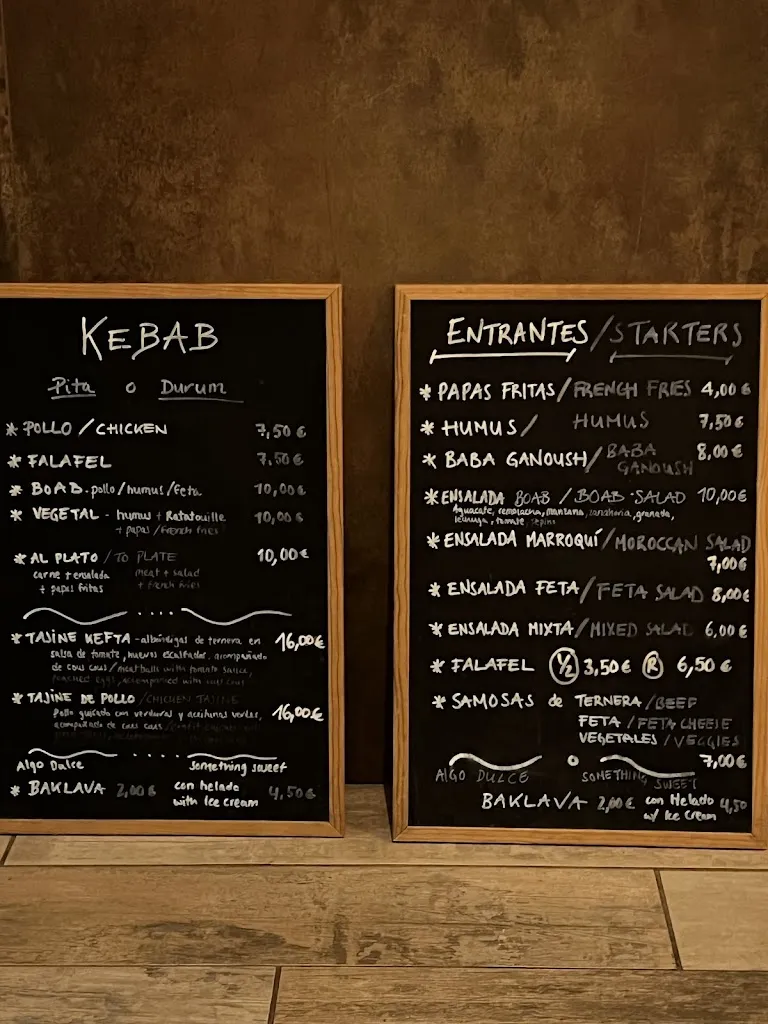 KEBAB
Pita o Durum
* POLLO / CHICKEN 7,50 €
* FALAFEL 7,50 €
* BOAB. pollo/humus/feta 10,00 €
* VEGETAL - humus + Ratatouille 10,00 €
+ papas / french fries
* AL PLATO / TO PLATE 10,00 €
carne + ensalada meat + salad
+ papas fritas + french fries
* TAJINE KEFTA - albóndigas de ternera en 16,00 €
salsa de tomate, huevos escalfados, acompañado
de cous cous / meatballs with tomato sauce,
poached eggs, accompanied with cous cous
* TAJINE DE POLLO / CHICKEN TAJINE
pollo guisado con verduras y aceitunas verdes, 16,00 €
acompañado de cous cous /
Algo Dulce Something sweet
* BAKLAVA 2,00 € con helado 4,50 €
with Ice cream
ENTRANTES / STARTERS
* PAPAS FRITAS / FRENCH FRIES 4,00 €
* HUMUS / HUMUS 7,50 €
* BABA GANOUSH / BABA GANOUSH 8,00 €
* ENSALADA BOAB / BOAB SALAD 10,00 €
Aguacate, remolacha, manzana, zanahoria, granada,
lechuga, tomate, pepino
* ENSALADA MARROQUÍ / MOROCCAN SALAD
7,00 €
* ENSALADA FETA / FETA SALAD 8,00 €
* ENSALADA MIXTA / MIXED SALAD 6,00 €
* FALAFEL 1/2 3,50 € R 6,50 €
* SAMOSAS de TERNERA / BEEF
FETA / FETA CHEESE
VEGETALES / VEGGIES
7,00 €
ALGO DULCE SOMETHING SWEET
BAKLAVA 2,00 € con Helado 4,50
w/ Ice Cream